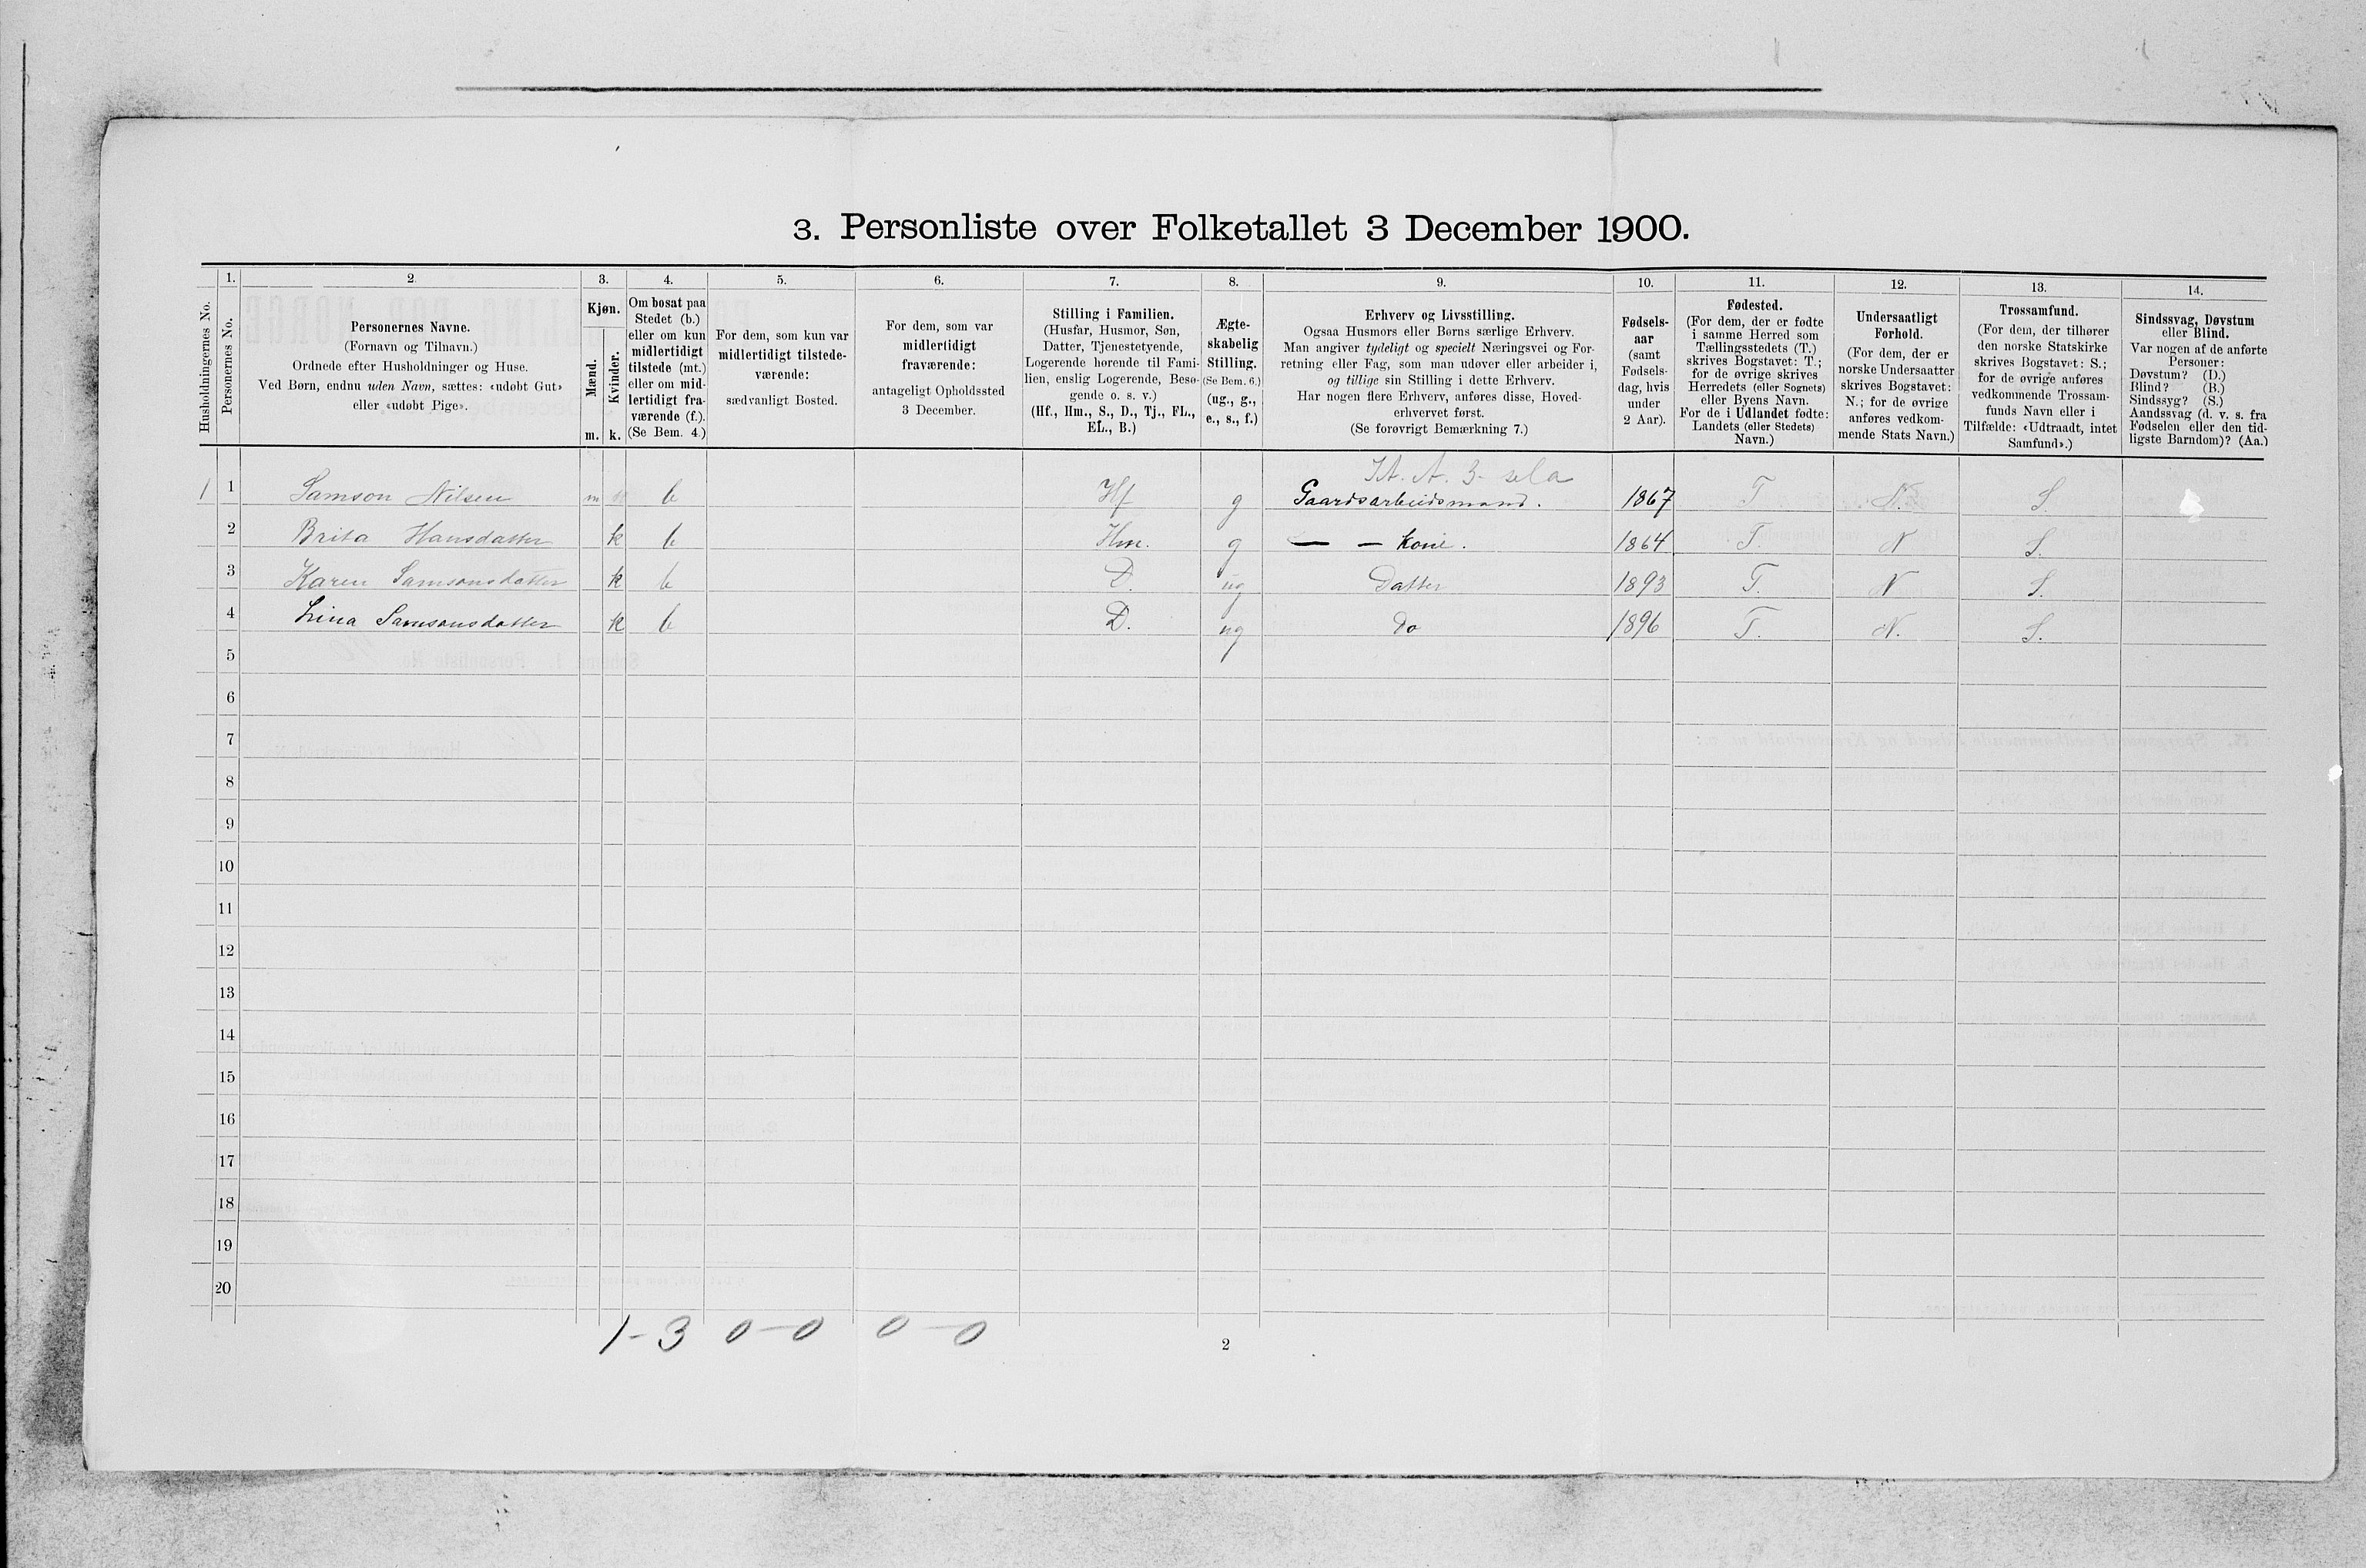 3. Personliste over Folketallet 3 December 1900.
1. 2. 3. 4. 5. 6. 7. 8. 9. 10. 11. 12. 13. 14.
Husholdningernes No.
Personernes No.
Personernes Navne.
(Fornavn og Tilnavn.)
Ordnede efter Husholdninger og Huse.
Ved Børn, endnu uden Navn, sættes: «udøbt Gut»
eller «udøbt Pige».
Kjøn.
Mænd.
m.
Kvinder.
k.
Om bosat paa
Stedet (b.)
eller om kun
midlertidigt
tilstede (mt.)
eller om mid-
lertidigt fra-
værende (f.).
(Se Bem. 4.)
For dem, som kun var
midlertidigt tilstede-
værende:
sædvanligt Bosted.
For dem, som var
midlertidigt
fraværende:
antageligt Opholdssted
3 December.
Stilling i Familien.
(Husfar, Husmor, Søn,
Datter, Tjenestetyende,
Logerende hørende til Fami-
lien, enslig Logerende, Besø-
gende o. s. v.)
(Hf., Hm., S., D., Tj., FL.,
EL., B.)
Ægte-
skabelig
Stilling.
(Se Bem. 6.)
(ug., g.,
e., s., f.)
Erhverv og Livsstilling.
Ogsaa Husmors eller Børns særlige Erhverv.
Man angiver tydeligt og specielt Næringsvei og For-
retning eller Fag, som man udøver eller arbeider i,
og tillige sin Stilling i dette Erhverv.
Har nogen flere Erhverv, anføres disse, Hoved-
erhvervet først.
(Se forøvrigt Bemærkning 7.)
Fødsels-
aar
(samt
Fødsels-
dag, hvis
under
2 Aar).
Fødested.
(For dem, der er fødte
i samme Herred som
Tællingsstedets (T.)
skrives Bogstavet: T.;
for de øvrige skrives
Herredets (eller Sognets)
eller Byens Navn.
For de i Udlandet fødte:
Landets (eller Stedets)
Navn.)
Undersaatligt
Forhold.
(For dem, der er
norske Undersaatter
skrives Bogstavet:
N.; for de øvrige
anføres vedkom-
mende Stats Navn.)
Trossamfund.
(For dem, der tilhører
den norske Statskirke
skrives Bogstavet: S.;
for de øvrige anføres
vedkommende Trossam-
funds Navn eller i
Tilfælde: «Udtraadt, intet
Samfund».)
Sindssvag, Døvstum
eller Blind.
Var nogen af de anførte
Personer:
Døvstum? (D.)
Blind? (B.)
Sindssyg? (S.)
Aandssvag (d. v. s. fra
Fødselen eller den tid-
ligste Barndom)? (Aa.)
1 1 Samson Nilsen m b Hf g Gaardsarbeidsmand. 1867 T N. S.
2 Brita Hansdatter k b Hm. g — — kone. 1864 T. N S.
3 Karen Samsonsdatter k b D. ug Datter 1893 T. N S.
4 Lina Samsonsdatter k b D. ug do 1896 T. N. S.
5
6
7
8
9
10
11
12
13
14
15
16
17
18
19
20
1-3 0-0 0-0
2